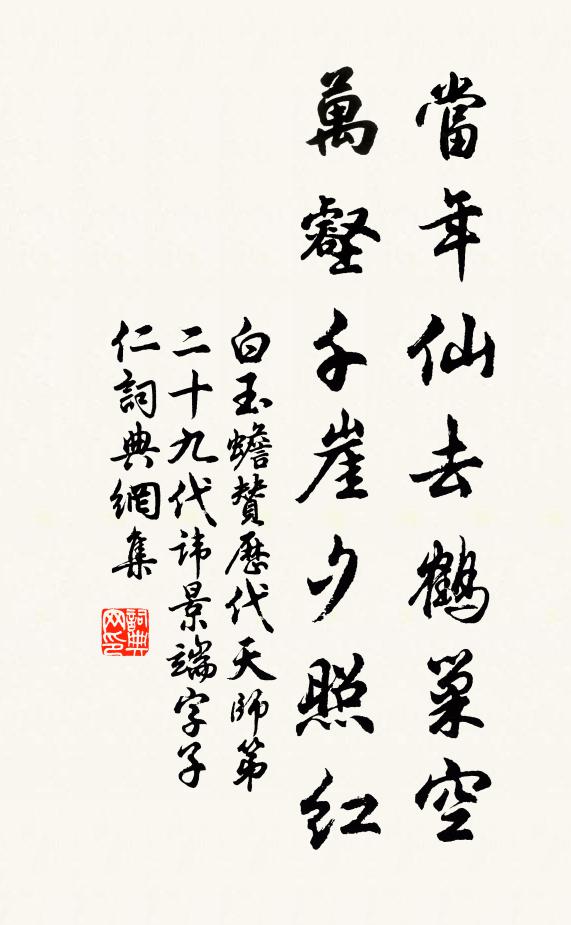 當年仙去鶴巢空
萬壑千崖夕照紅
白玉蟾贊歷代天師第
二十九代諱景端字子
仁詞典網集
詞典网印